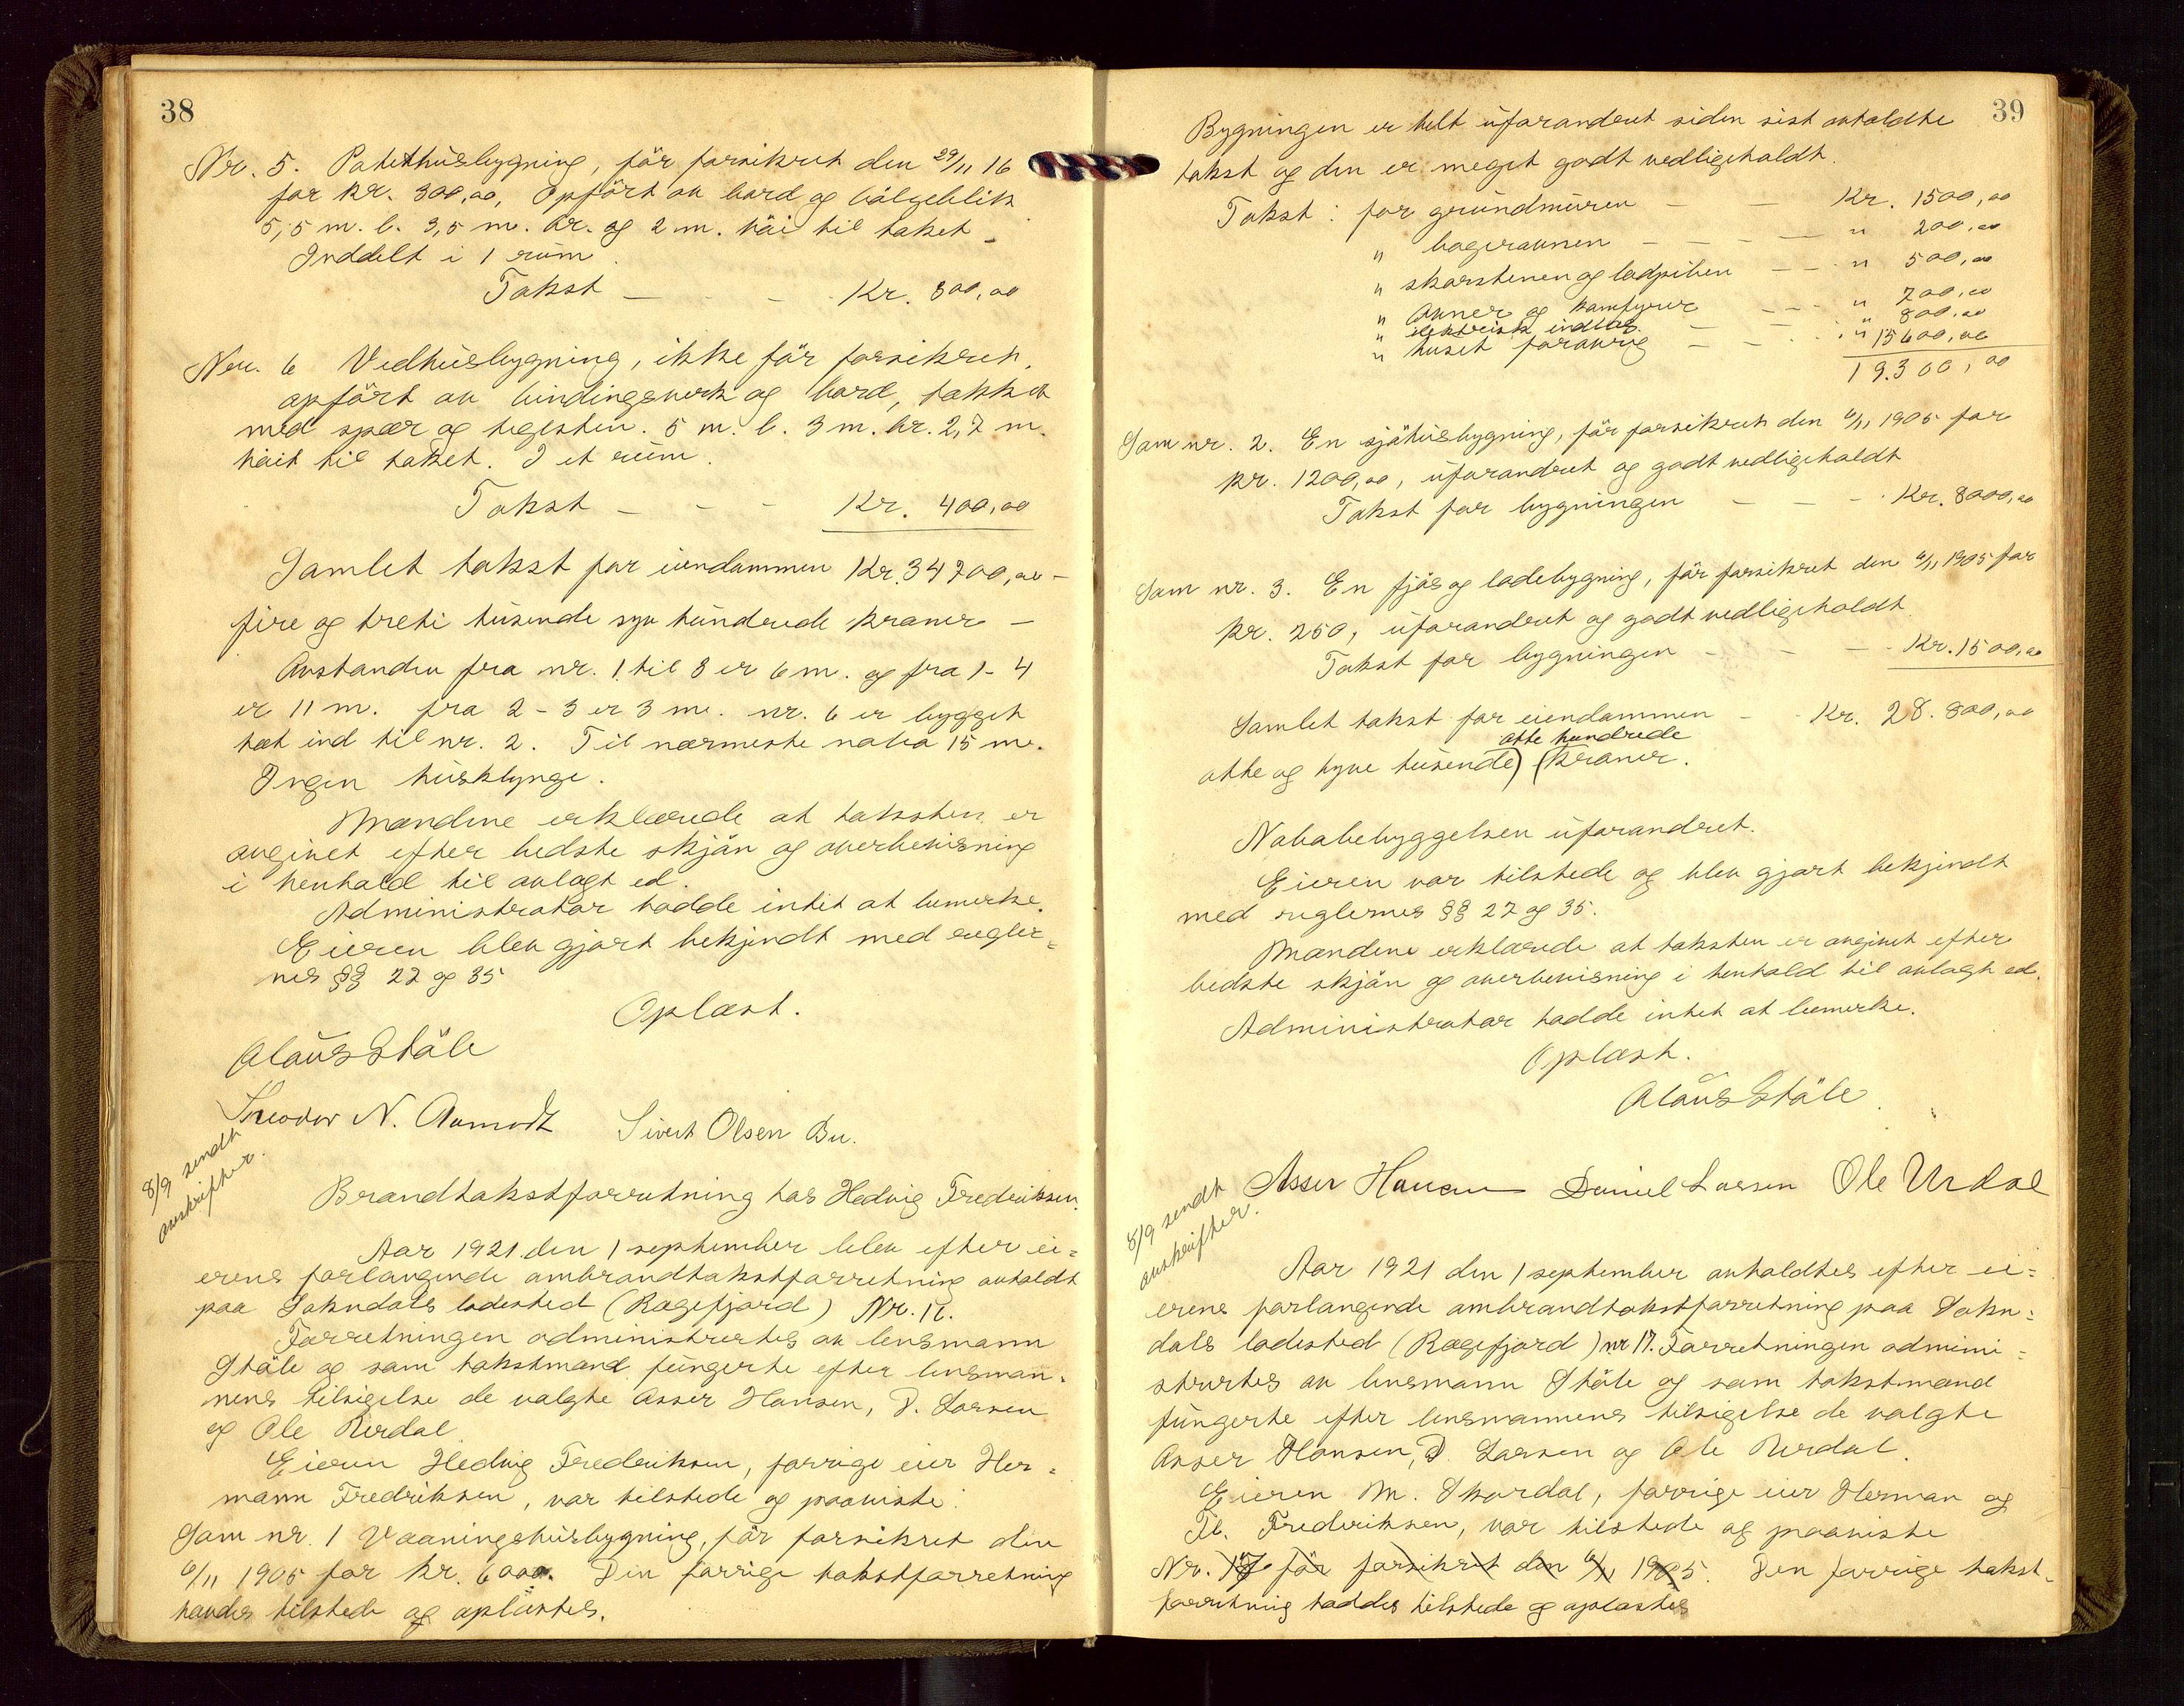 38
Nr. 5. Potethusbygning, før forsikret den 29/11 16
for kr. 300,00, Opført av bord og bølgeblik
5,5 m. l. 3,5 m. br. og 2 m. høi til taket.
Inddelt i 1 rum.
Takst — - - Kr. 800,00
Nr. 6 Vedhusbygning, ikke før forsikret,
opført av bindingsverk og bord, tækket
med spær og tegelsten. 5 m. l. 3 m. br. 2,7 m.
høit til taket. I et rum.
Takst — - - Kr. 400,00
Samlet takst for eiendommen Kr. 34700,00 —
fire og treti tusende syv hundrede kroner —
Avstanden fra nr. 1 til 3 er 6 m. og fra 1-4
er 11 m. fra 2-3 er 3 m. nr. 6 er bygget
tæt ind til nr. 2. Til nærmeste nabo 15 m.
Ingen husklynge.
Mændene erklærede at taksten er
avgivet efter bedste skjøn og overbevisning
i henhold til avlagt ed.
Administrator hadde intet at bemerke.
Eieren blev gjort bekjendt med regler=
nes §§ 27 og 35
Oplæst.
Olaus Ståle
Theodor N. Aamodt Sivert Olsen Bu.
8/9 sendt
avskrifter.
Brandtakstforretning hos Hedvig Fredriksen.
Aar 1921 den 1 september blev efter ei=
erens forlangende ombrandtakstforretning avholdt
paa Sokndals ladested (Rægefjord) Nr. 16.
Forretningen administrertes av lensmann
Ståle og som takstmænd fungerte efter lensman-
nens tilsigelse de valgte Asser Hansen, D. Larsen
og Ole Urdal.
Eieren Hedvig Fredriksen, forrige eier Her=
mann Fredriksen, var tilstede og paaviste:
Som nr. 1 Vaaningshusbygning, før forsikret den
6/11 1905 for kr. 6000. Den forrige takstforretning
havdes tilstede og oplæstes.
39
Bygningen er helt uforandret siden sist avholdte
takst og den er meget godt vedligeholdt.
Takst: for grundmuren — — Kr. 1500,00
" bagerovnen — — — " 200,00
" skorstenen og ladpiben — — " 500,00
" Ovner og komfyrer — — " 700,00
" elektrisk indlæg — — " 800,00
" huset forøvrig — — " 15600,00
19.300,00
Som nr. 2. En sjøhusbygning, før forsikret den 6/11 1905 for
kr. 1200,00, uforandret og godt vedligeholdt
Takst for bygningen — — - Kr. 8000,00
Som nr. 3. En fjøs og ladebygning, før forsikret den 6/11 1905 for
kr. 250, uforandret og godt vedligeholdt.
Takst for bygningen - - - Kr. 1500,00
Samlet takst for eiendommen - Kr. 28.800,00
otte hundrede
otte og tyve tusende) (kroner.
Nabobebyggelsen uforandret.
Eieren var tilstede og blev gjort bekjendt
med reglernes §§ 27 og 35.
Mændene erklærede at taksten er avgivet efter
bedste skjøn og overbevisning i henhold til avlagt ed.
Administrator hadde intet at bemerke.
Oplæst.
Olaus Ståle.
Asser Hansen Daniel Larsen Ole Urdal
8/9 sendt
avskrifter.
Aar 1921 den 1 september avholdtes efter ei=
erens forlangende ombrandtakstforretning paa Sokn=
dals ladested (Rægefjord) nr 17. Forretningen admini=
strertes av lensmann Ståle og som takstmænd
fungerte efter lensmannens tilsigelse de valgte
Asser Hansen, D. Larsen og Ole Urdal.
Eieren M. Skordal, forrige eier Herman og
Fredriksen, var tilstede og paaviste
Nr. 17 før forsikret den 6/11 1905. Den forrige takst-
forretning haddes tilstede og oplæstes